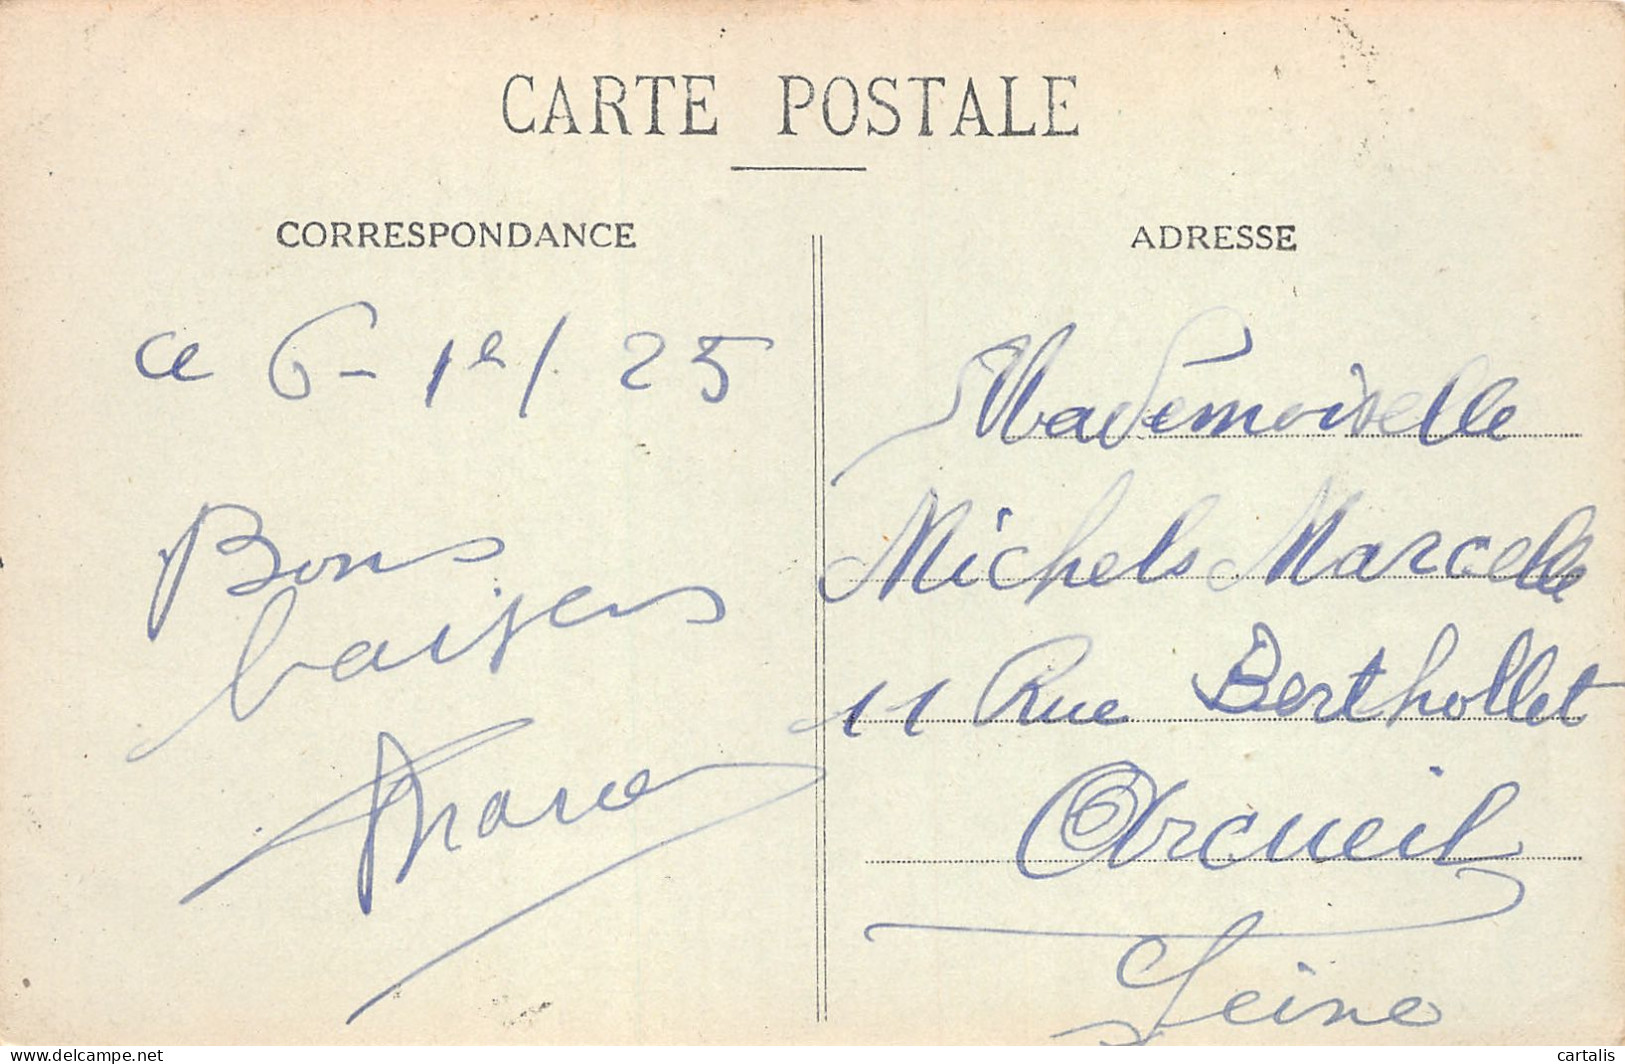 CARTE POSTALE
CORRESPONDANCE
ce 6 - 1er/. 25
Bons
baisers
ADRESSE
Mademoiselle
Michels Marcelle
11 Rue Berthollet
Arcueil
Seine
delcampe.net
cartalis